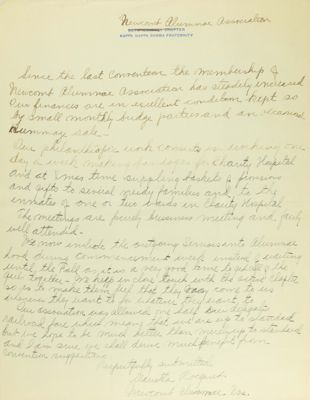 Newcomb Alumnae Association
BETA OMICRON CHAPTER
KAPPA KAPPA GAMMA FRATERNITY
Since the last Convention the membership of
Newcomb Alumnae Association has steadily increased
Our finances are in excellent condition kept so
by small monthly bridge parties and an occasional
rummage sale -
Our philanthropic work consists in working one
day a week making bandages for Charity Hospital
and at Xmas time supplying baskets of provisions
and gifts to several needy families and to the
inmates of one or two wards in Charity Hospital
The meetings are purely business meeting and fairly
well attended -
We now include the outgoing Seniors into Alumnae
during commencement week instead of waiting
until the Fall as it is a very good time to
get together - We keep in close touch with the active chapter
so as to make them feel that they may come to us
whenever they want to for whatever they want to
Our association was allowed one half our delegate's
railroad fare which means that we are up to standard
but we hope to be much better than merely up to standard
and I am sure we shall derive much benefit from
Convention suggestions
Respectfully submitted
Newcomb Alumnae Ass.